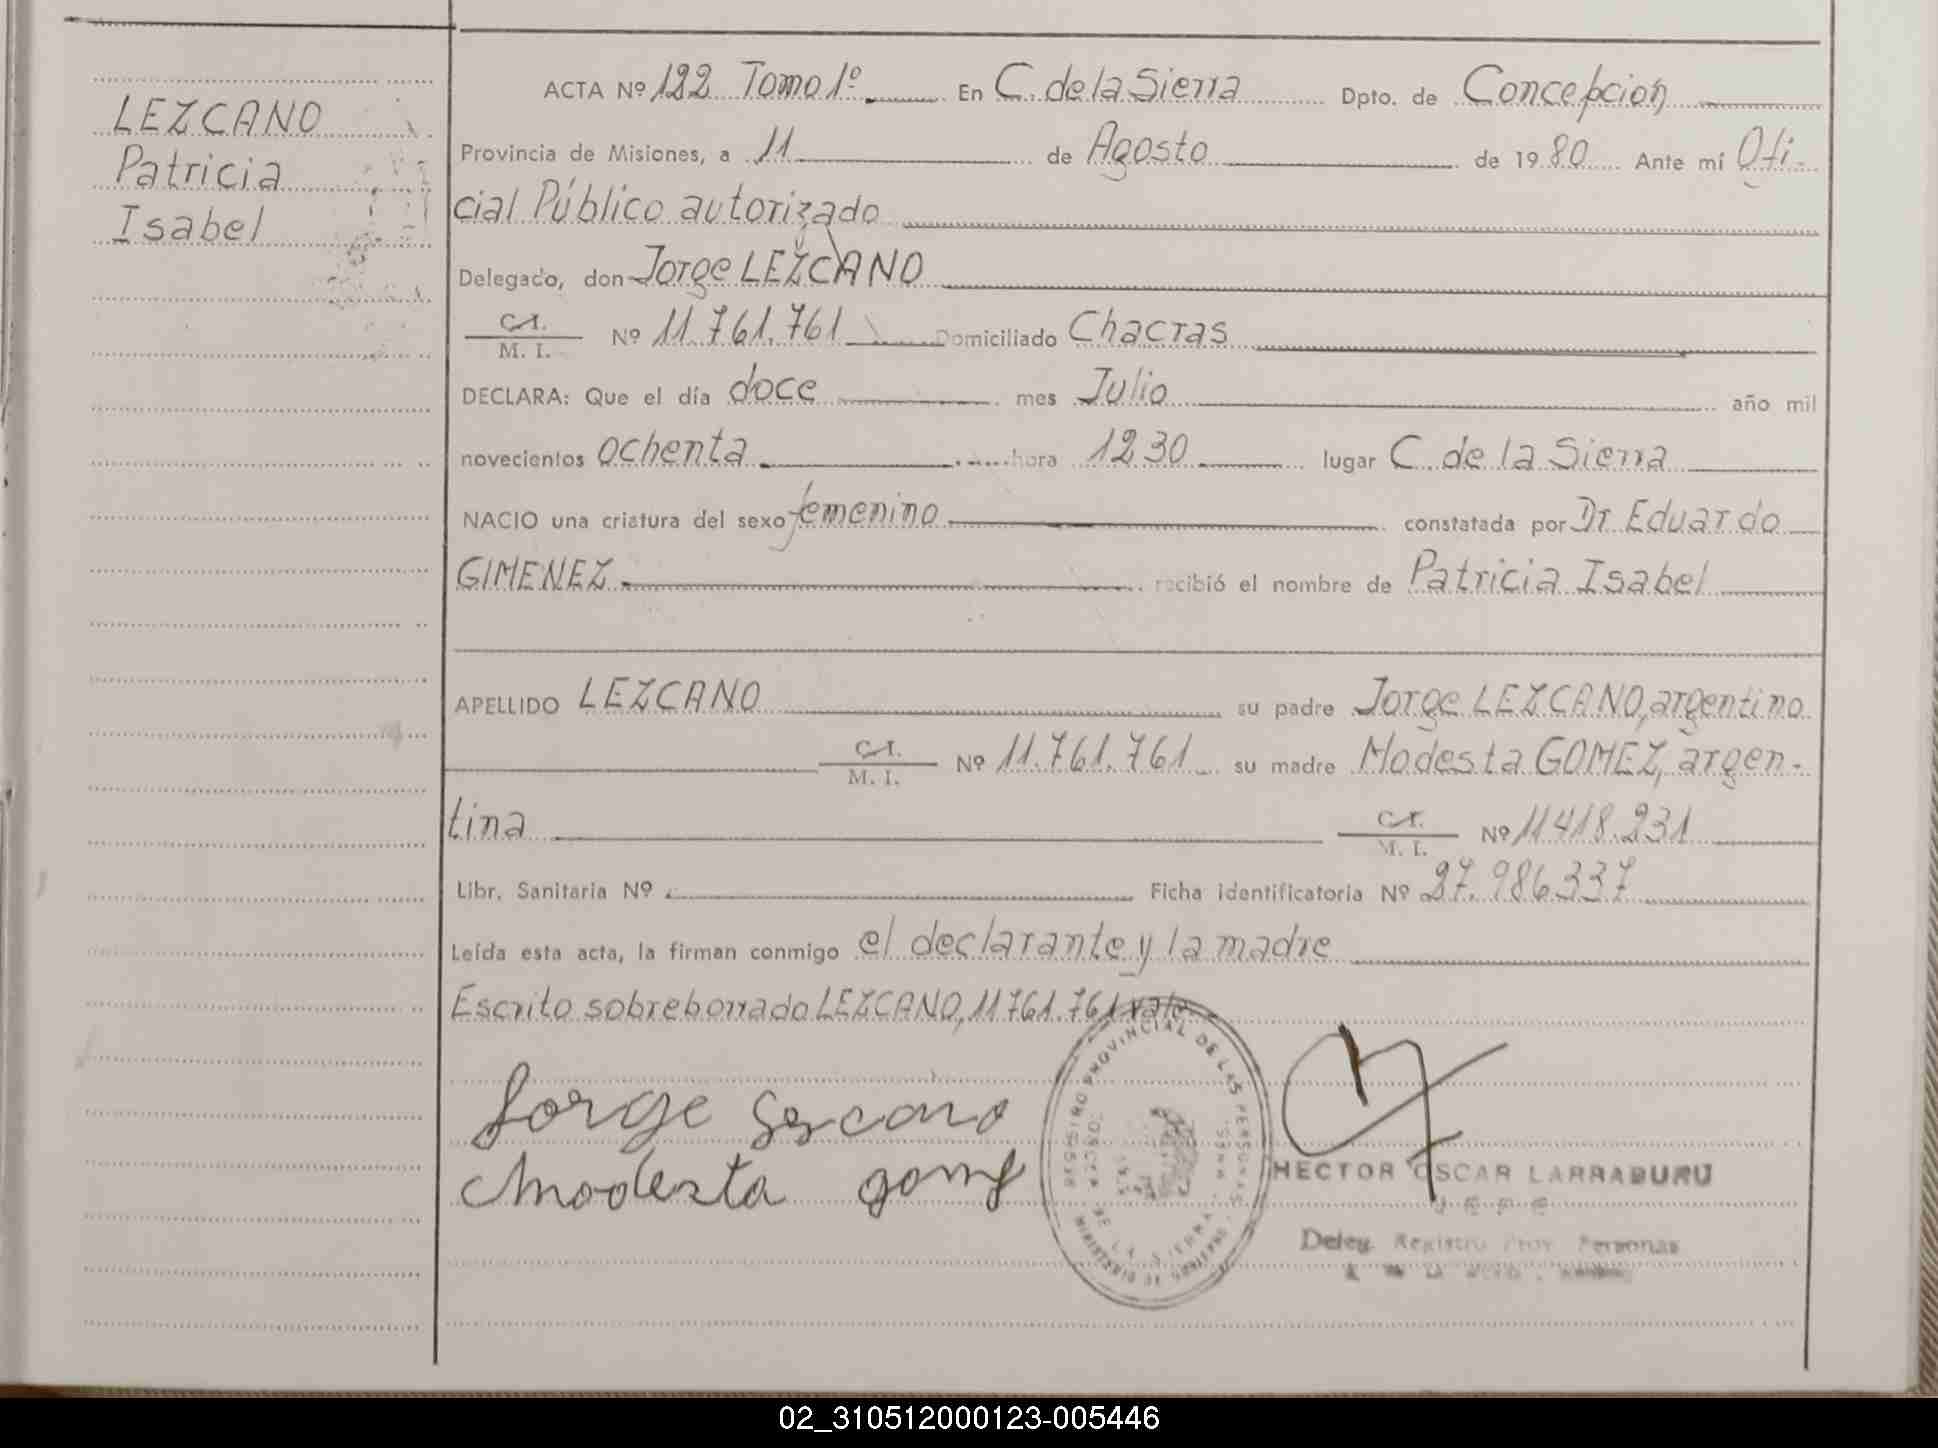 LEZCANO
Patricia
Isabel
ACTA Nº 122 Tomo 1º En C. de la Sierra Dpto. de Concepcion
Provincia de Misiones, a 11 de Agosto de 1980 Ante mí Ofi-
cial Público autorizado
Delegado, don Jorge LEZCANO
C.I. / M. I. Nº 11.761.761 Domiciliado Chacras
DECLARA: Que el día doce mes Julio año mil
novecientos ochenta hora 1230 lugar C. de la Sierra
NACIO una criatura del sexo femenino constatada por Dr Eduardo
GIMENEZ recibió el nombre de Patricia Isabel
APELLIDO LEZCANO su padre Jorge LEZCANO, argentino
C.I. / M. I. Nº 11.761.761 su madre Modesta GOMEZ, argen-
tina C.I. / M. I. Nº 11418.231
Libr. Sanitaria Nº Ficha identificatoria Nº 27.986337
Leída esta acta, la firman conmigo el declarante y la madre
Escrito sobreborrado LEZCANO, 11761.761 vale
Jorge Lezcano
Modesta gomez
REGISTRO PROVINCIAL DE LAS PERSONAS
DE LA SIERRA
HECTOR OSCAR LARRABURU
JEFE
Deleg. Registro Prov. Personas
02_310512000123-005446